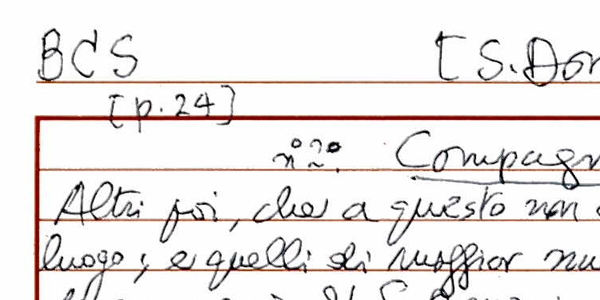 BCS [S.Dom
[p.24]
nº 2º. Compagn
Altri poi, che a questo non
luogo; e quelli di maggior nu